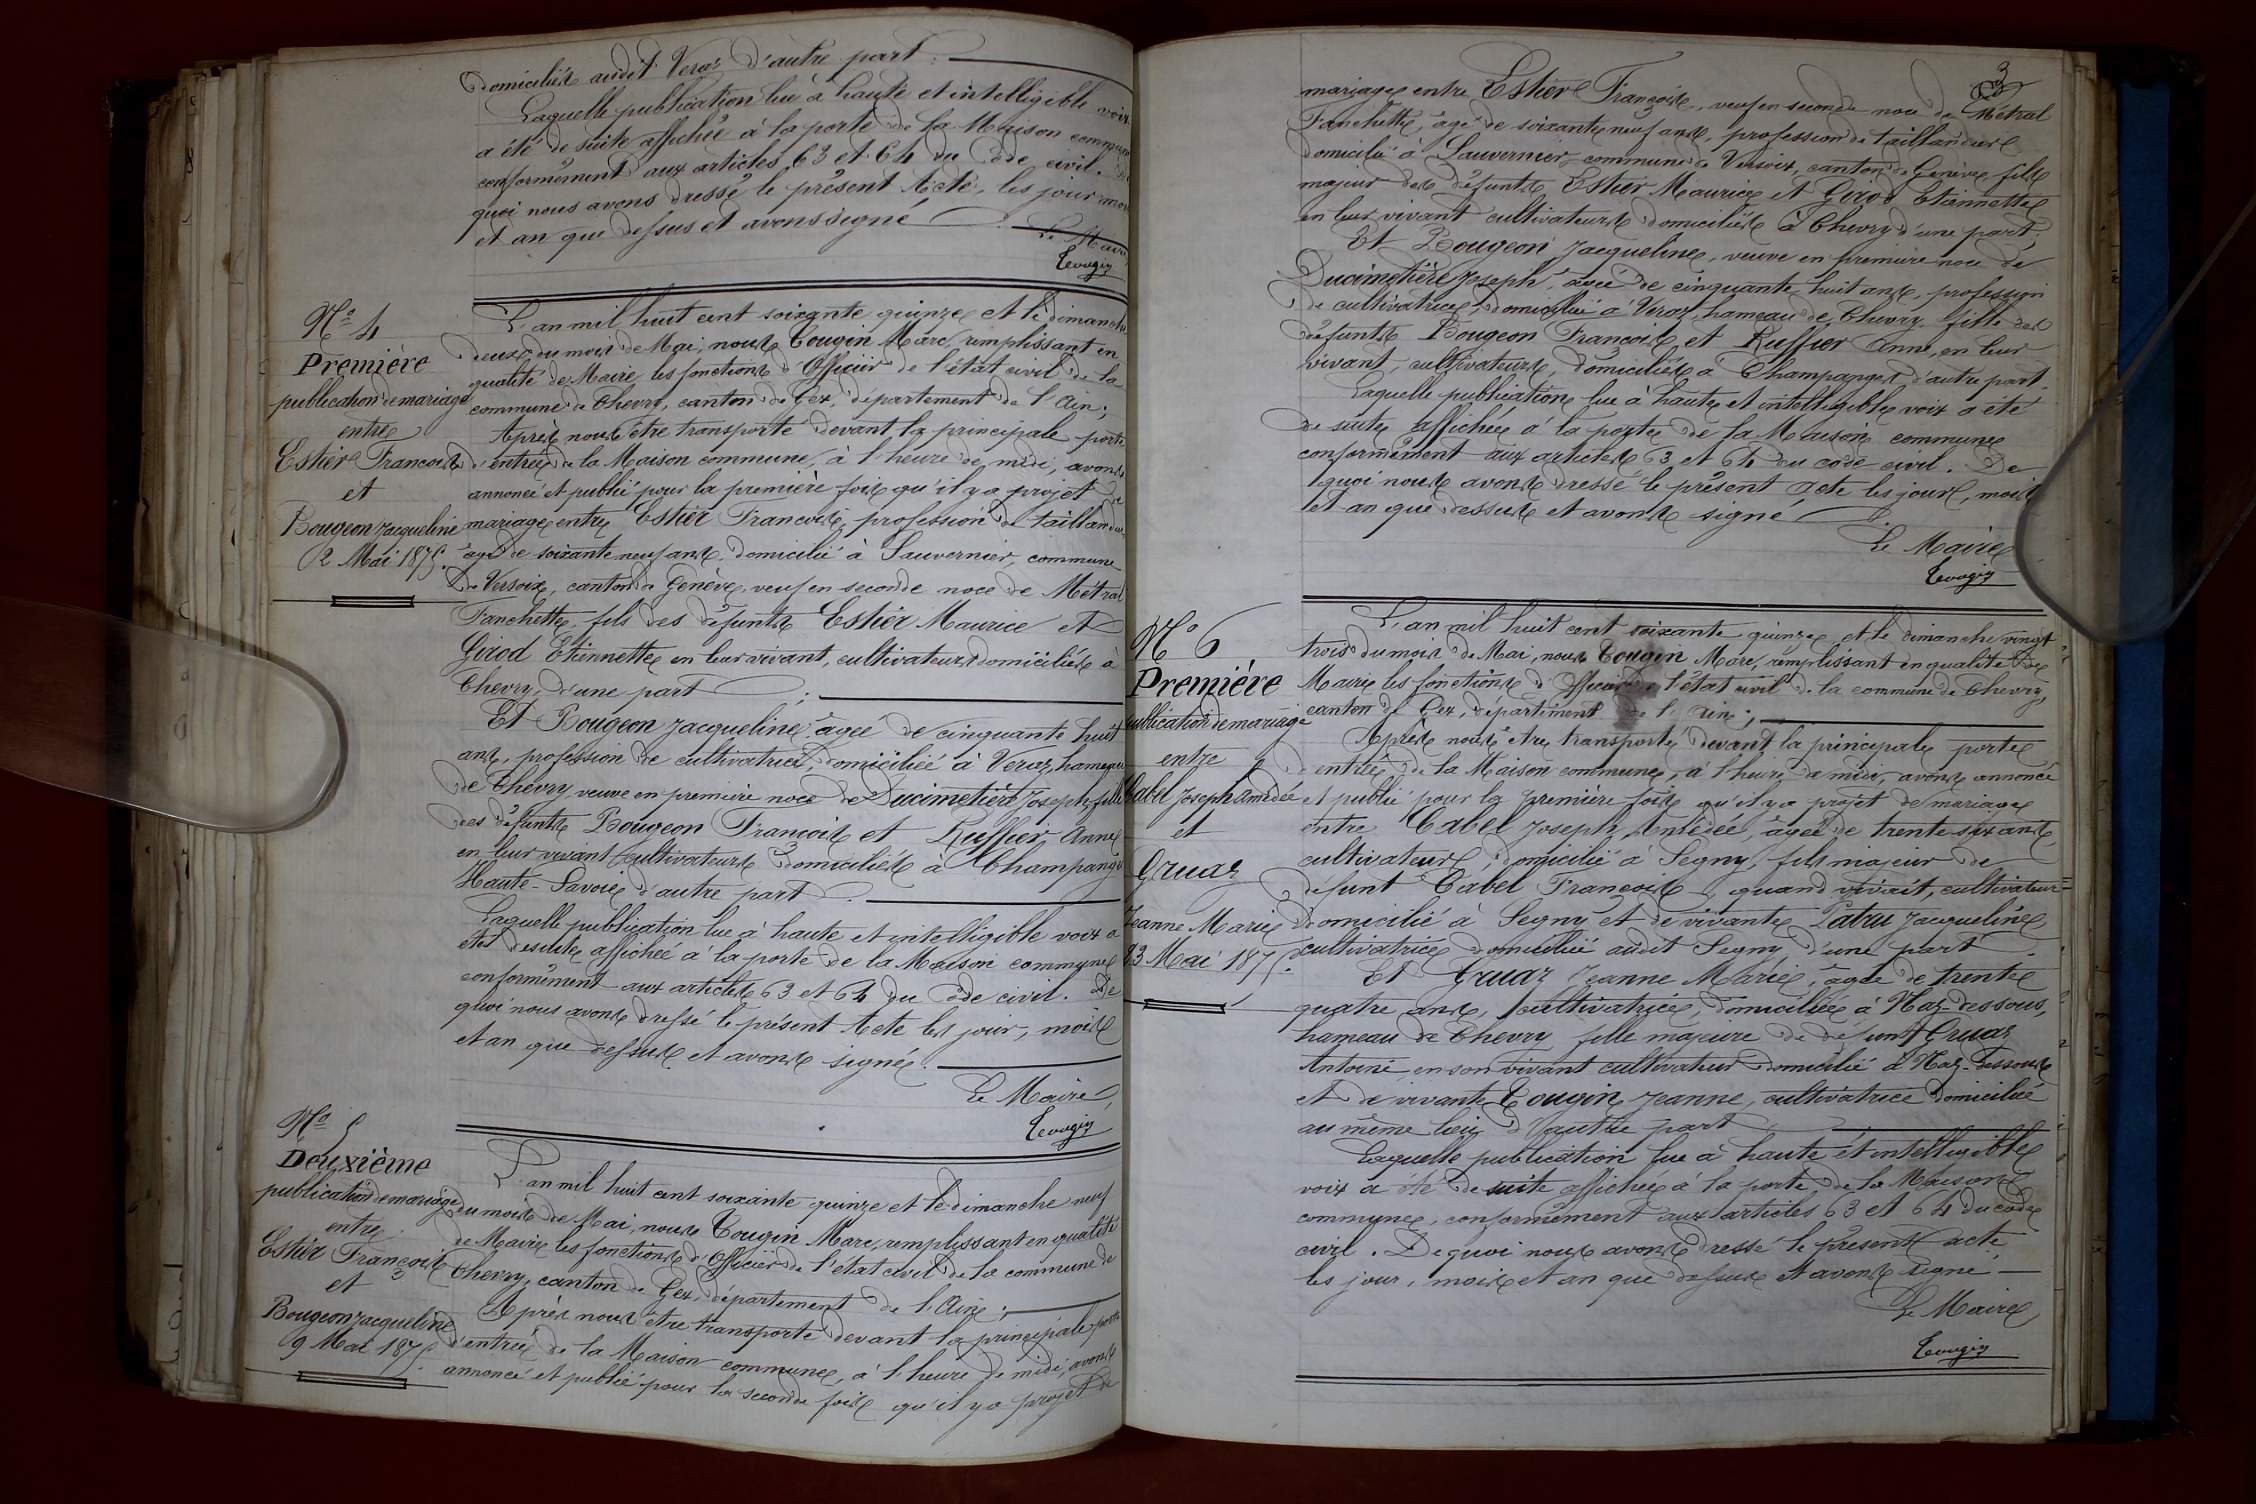 domiciliés audit Veraz d'autre part.
Laquelle publication lue à haute et intelligible voix
a été de suite affichée à la porte de la Maison commune
conformément aux articles 63 et 64 du Code civil. De
quoi nous avons dressé le présent Acte, les jour mois
et an que dessus et avons signé
Le Maire
Tougin
Nº 4
Première
publication de mariage
entre
Estier Francois
et
Bougeon Jacqueline
2 Mai 1875.
L'an mil huit cent soixante quinze et le dimanche
deux du mois de Mai, nous Tougin Marc, remplissant en
qualité de Maire les fonctions d'Officier de l'état civil de la
commune de Chevry, canton de Gex, département de l'Ain;
Après nous être transporté devant la principale porte
d'entrée de la Maison commune, à l'heure de midi, avons
annoncé et publié pour la première fois qu'il y a projet de
mariage entre Estier Francois, profession de taillandier
agé de soixante neuf ans, domicilié à Sauvernier, commune
de Versoix, canton de Genève, veuf en seconde noce de Métral
Fanchette, fils des défunts Estier Maurice et
Girod Etiennette en leur vivant, cultivateurs domiciliés à
Chevry, d'une part;
Et Bougeon Jacqueline agée de cinquante huit
ans, profession de cultivatrice, domiciliée à Veraz, hameau
de Chevry veuve en première noce de Ducimetière Joseph, fille
des défunts Bougeon Francois et Ruffier Anne
en leur vivant cultivateurs domiciliés à Champanges
Haute-Savoie d'autre part.
Laquelle publication lue à haute et intelligible voix a
été de suite affichée à la porte de la Maison commune
conformément aux articles 63 et 64 du Code civil. De
quoi nous avons dressé le présent Acte les jour, mois
et an que dessus et avons signé.
Le Maire,
Tougin
Nº 5
Deuxième
publication de mariage
entre
Estier François
et
Bougeon Jacqueline
9 Mai 1875.
L'an mil huit cent soixante quinze et le dimanche neuf
du mois de Mai, nous Tougin Marc, remplissant en qualité
de Maire les fonctions d'Officier de l'état civil de la commune de
Chevry, canton de Gex, département de l'Ain;
Après nous être transporté devant la principale porte
d'entrée de la Maison commune, à l'heure de midi, avons
annoncé et publié pour la seconde fois qu'il y a projet de
3
mariage entre Estier François, veuf en seconde noce de Métral
Fanchette, agé de soixante neuf ans, profession de taillandier
domicilié à Sauvernier, commune de Versoix, canton de Genève, fils
majeur des défunts Estier Maurice et Girod Etiennette
en leur vivant cultivateurs domiciliés à Chevry d'une part;
Et Bougeon Jacqueline, veuve en première noce de
Ducimetière Joseph, agée de cinquante huit ans, profession
de cultivatrice, domiciliée à Veraz, hameau de Chevry fille des
défunts Bougeon François et Ruffier Anne, en leur
vivant, cultivateurs, domiciliés à Champanges, d'autre part.
Laquelle publication lue à haute et intelligible voix a été
de suite affichée à la porte de la Maison commune
conformément aux articles 63 et 64 du code civil. De
quoi nous avons dressé le présent acte les jour, mois
et an que dessus et avons signé
Le Maire
Tougin
Nº 6
Première
publication de mariage
entre
Cabel Joseph Amédée
et
Gruaz
Jeanne Marie
23 Mai 1875.
L'an mil huit cent soixante quinze, et le dimanche vingt
trois du mois de Mai, nous Tougin Marc, remplissant en qualité de
Maire les fonctions d'Officier de l'état civil de la commune de Chevry,
canton de Gex, département de l'Ain;
Après nous être transporté devant la principale porte
d'entrée de la Maison commune, à l'heure de midi, avons annoncé
et publié pour la première fois qu'il y a projet de mariage
entre Cabel Joseph Amédée, agé de trente six ans,
cultivateur, domicilié à Segny, fils majeur de
défunt Cabel François, quand vivait, cultivateur
domicilié à Segny et de vivante Patru Jacqueline
cultivatrice domiciliée audit Segny d'une part.
Et Gruaz Jeanne Marie, agée de trente
quatre ans, cultivatrice, domiciliée à Naz-dessous,
hameau de Chevry fille majeure de défunt Gruaz
Antoine, en son vivant cultivateur domicilié à Naz-dessous
et de vivante Tougin Jeanne, cultivatrice domiciliée
au même lieu d'autre part
Laquelle publication lue à haute et intelligible
voix a été de suite affichée à la porte de la Maison
commune, conformément aux articles 63 et 64 du code
civil. De quoi nous avons dressé le présent acte
les jour, mois et an que dessus et avons signé
Le Maire
Tougin